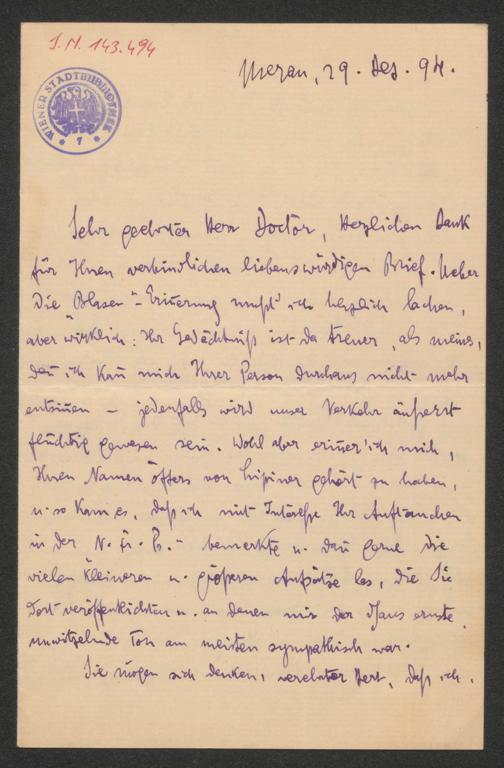 I.N. 143.494
WIENER STADTBIBLIOTHEK
* 7 *
Meran, 29. Dez. 94.
Sehr geehrter Herr Doctor, Herzlichen Dank
für Ihren verbindlichen liebenswürdigen Brief. Ueber
die "Blasen"-Eriñerung mußt' ich herzlich lachen,
aber wirklich: Ihr Gedächtniß ist da treuer, als meines,
deñ ich kañ mich Ihrer Person durchaus nicht mehr
entsiñen – jedenfalls wird unser Verkehr äußerst
flüchtig gewesen sein. Wohl aber eriñer' ich mich,
Ihren Namen öfters von Lipiner gehört zu haben,
u. so kam es, daß ich mit Interesse Ihr Auftauchen
in der N. fr. Pr. bemerkte u. dañ gerne die
vielen kleineren u. größeren Aufsätze las, die Sie
dort veröffentlichten u. an denen mir der ernste,
unwitzelnde Ton am meisten sympathisch war.
Sie mögen sich denken, verehrter Herr, daß ich